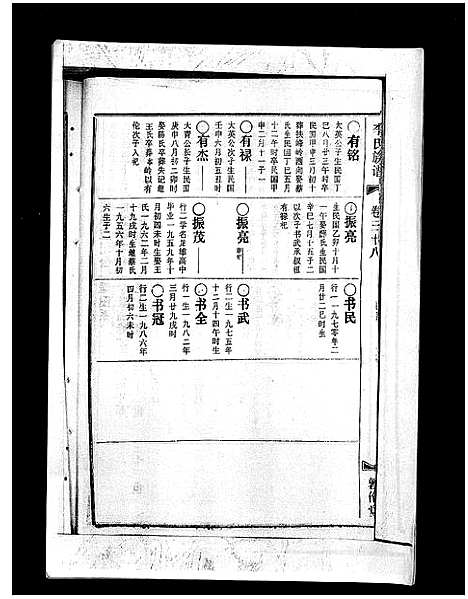 李氏族谱
卷三 廿八
有铭
大英公子生民国丁
巳八月廿三时卒
民国甲申三月初十
葬扶峰岭西向娶蔡
氏生民国丁巳五月
十二午时卒民国甲
申二月十一子一
有禄
大英公次子生民国
壬申六月初五丑时
有杰
大青公长子生民国
庚申八月初二卯时
娶蔡氏卒葬失记继
王氏卒葬本岭以有
伦次子入祀
振亮
生民国乙卯十月十
一午娶蔡氏生民国
辛巳七月十五子二
以次子书武承叔祖
有禄祀
振亮
振茂
行二学名龙雄高中
毕业一九五九年十
月初四未时生娶王
氏一九六二年二月
十九戌时生继蔡氏
一九五六年十月初
六生子二
书民
行一一九七零年二
月廿二巳时生
书武
行二生一九七五年
十二月十四午时生
书全
行一生一九八二年
三月廿九戌时
书冠
行二生一九八六年
四月初六未时